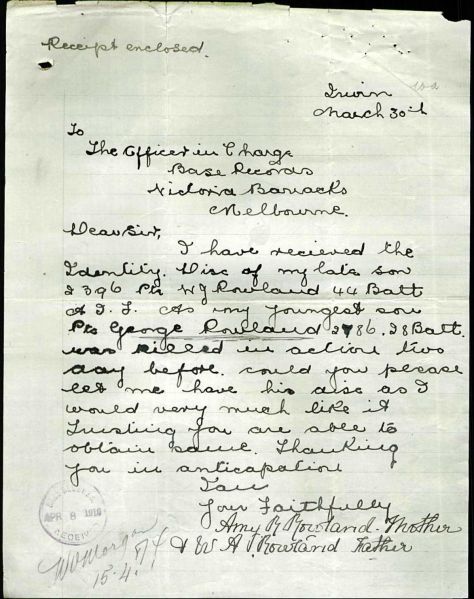 Receipt enclosed.
Irwin
March 30th
To
The Officer in Charge
Base Records
Victoria Barracks
Melbourne.
Dear Sir,
I have recieved the
Identity. Disc of my late son
2396 Pte W J Rowland 44 Batt
A I. F. As my youngest son
Pte George Rowland 2786. 28 Batt.
was killed in action two
day before. could you please
let me have his disc as I
would very much like it
Trusting you are able to
obtain same. Thanking
you in anticapation
I am
Your Faithfully
Amy R Rowland. Mother
& W A J. Rowland Father
APR 8 1918
15.4.